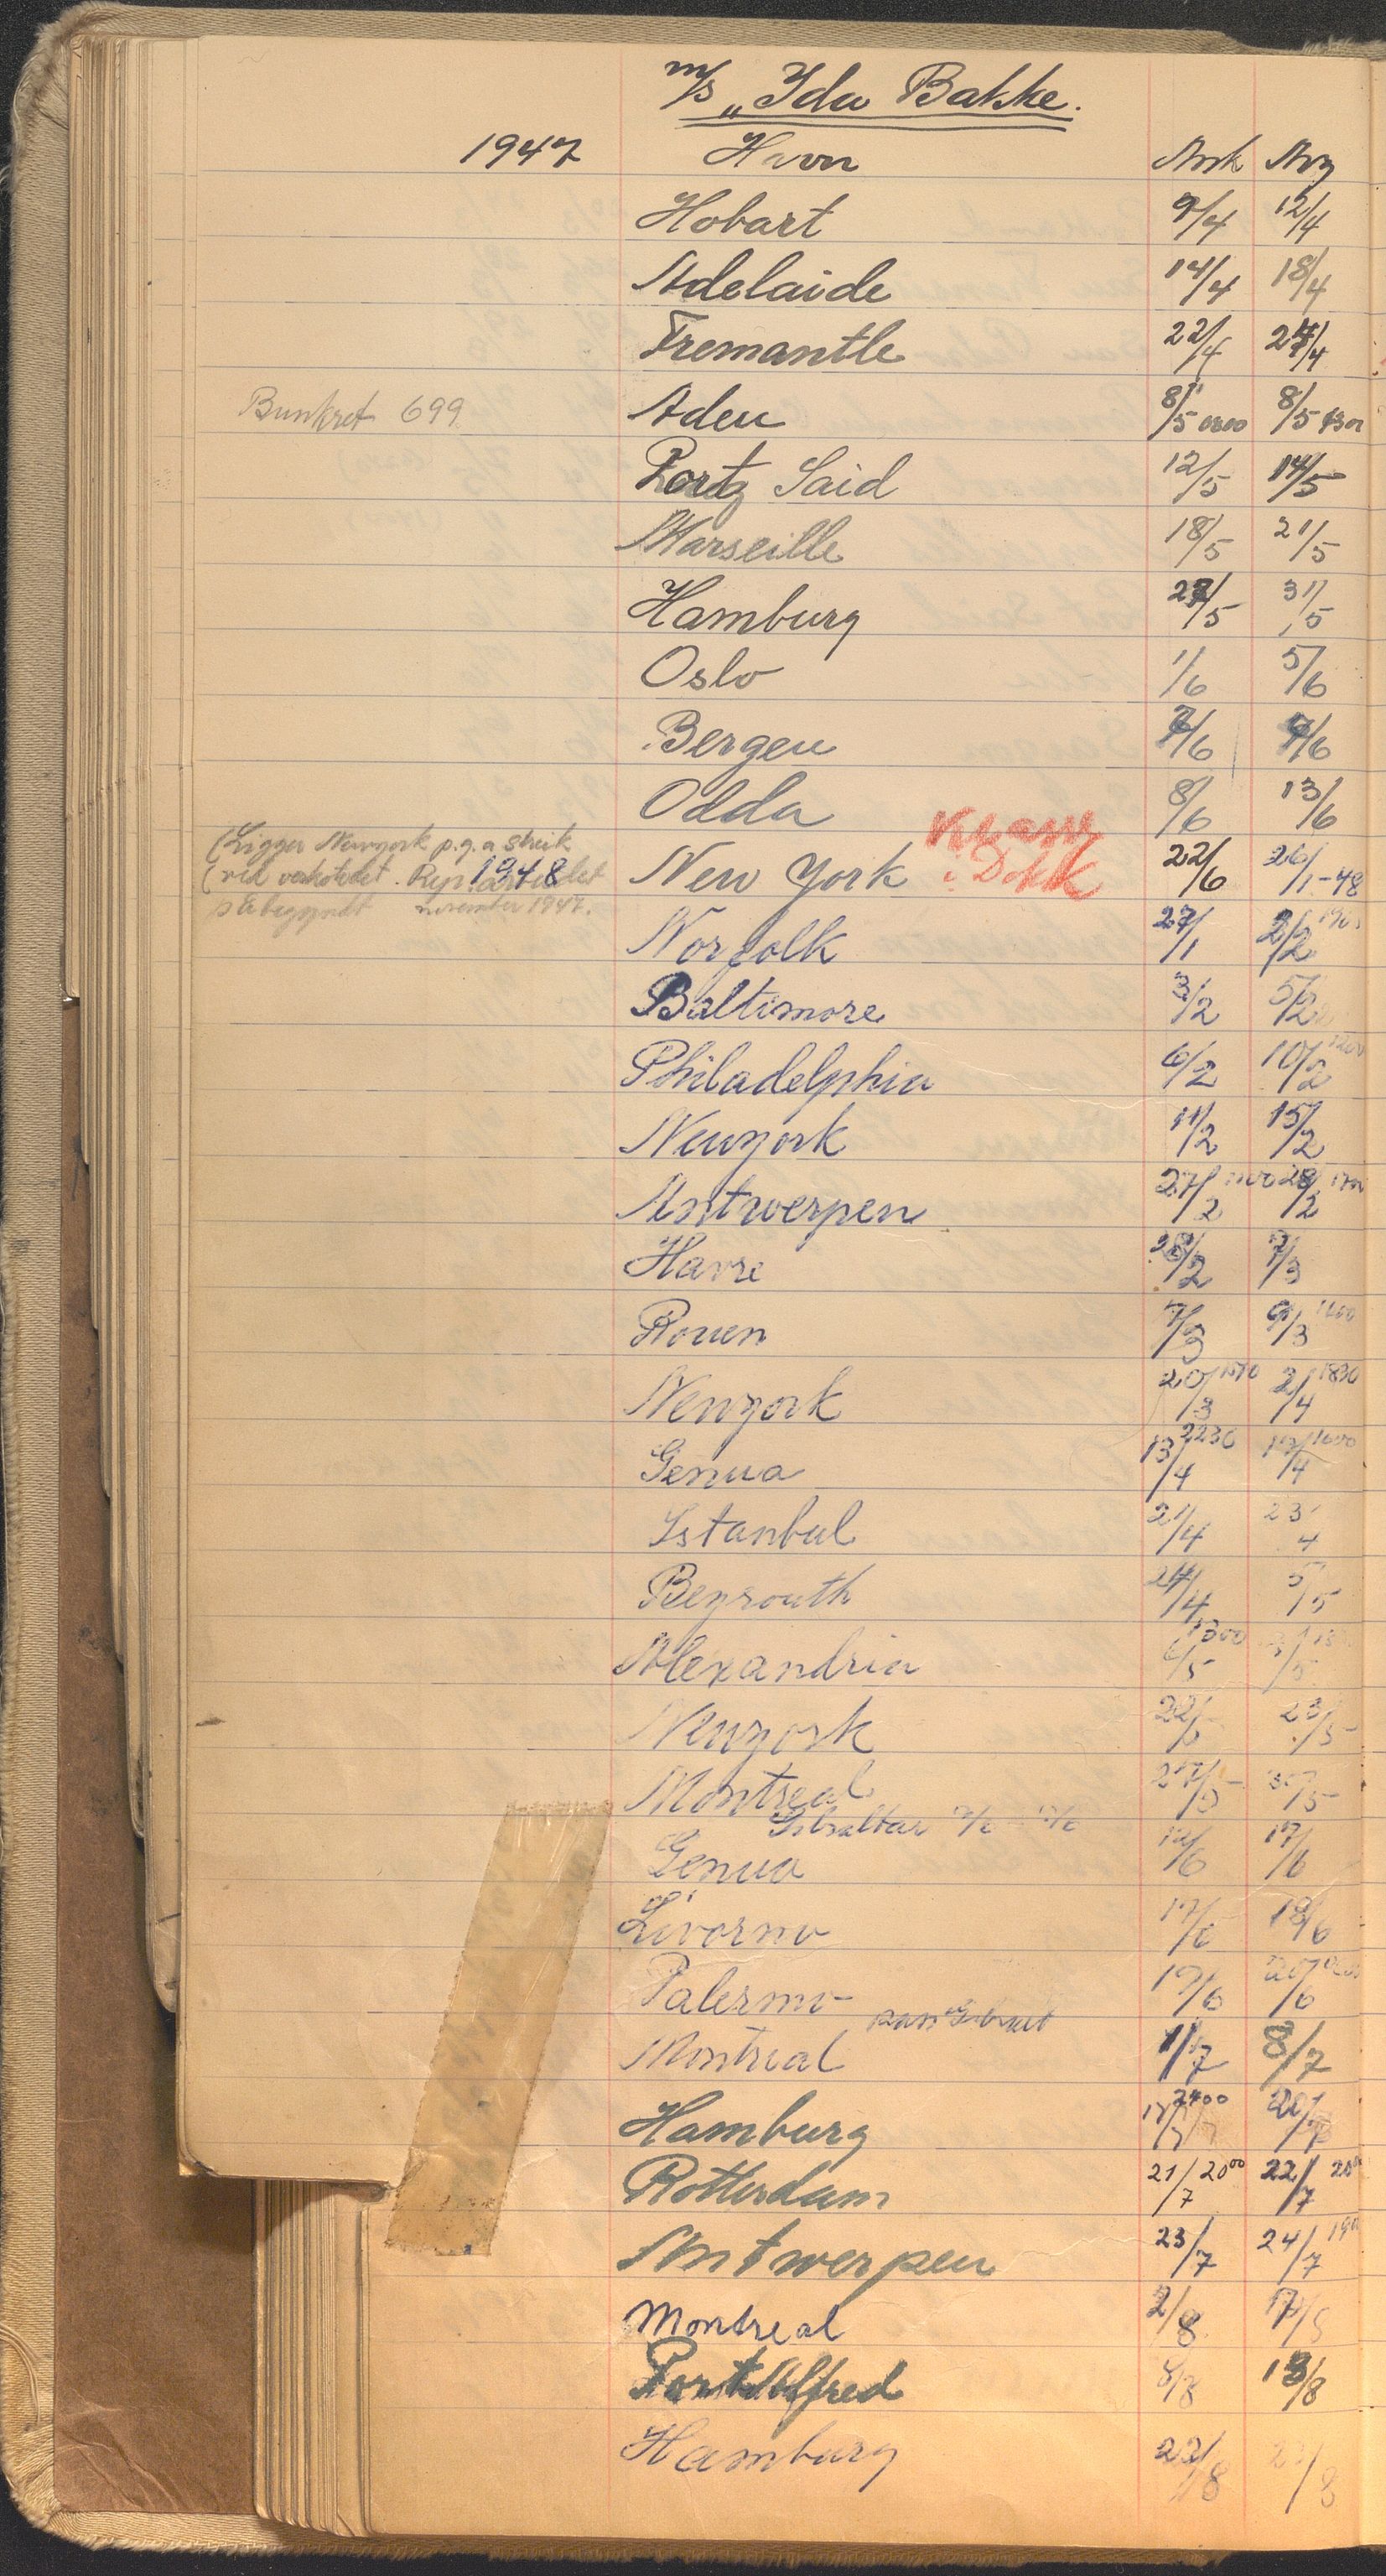 m/s „Ida Bakke.
1947 Havn Ank Avg
Hobart 9/4 12/4
Adelaide 14/4 18/4
Fremantle 22/4 24/4
Bunkret 699 Aden 8/5 0800 8/5 1300
Port Said 12/5 14/5
Marseille 18/5 21/5
Hamburg 27/5 31/5
Oslo 1/6 5/6
Bergen 7/6 7/6
Odda 8/6 13/6
(Ligger Newyork p.g.a streik
(ved verkstedet. 1948
påbegyndt november 1947.
New York Klasse i Dokk 22/6 26/1-48
Norfolk 27/1 2/2
Baltimore 3/2 5/2
Philadelphia 6/2 10/2
Newyork 11/2 15/2
Antwerpen 27/2 28/2
Havre 28/2 7/3
Rouen 7/3 9/3
Newyork 20/3 2/4 1830
Genua 13/4 2230 17/4
Istanbul 21/4 23/4
Beyrouth 24/4 5/5
Alexandria 6/5 1300
Newyork 22/5 23/5
Montreal 27/5 30/5
Gibraltar
Genua 12/6 17/6
Livorno 17/6 18/6
Palermo 19/6 20/6
pass
Montreal 1/7 8/7
Hamburg 2400 20/7
Rotterdam 21/7 2000 22/7
Antwerpen 23/7 24/7
Montreal 2/8
Port Alfred 8/8 13/8
Hamburg 22/8